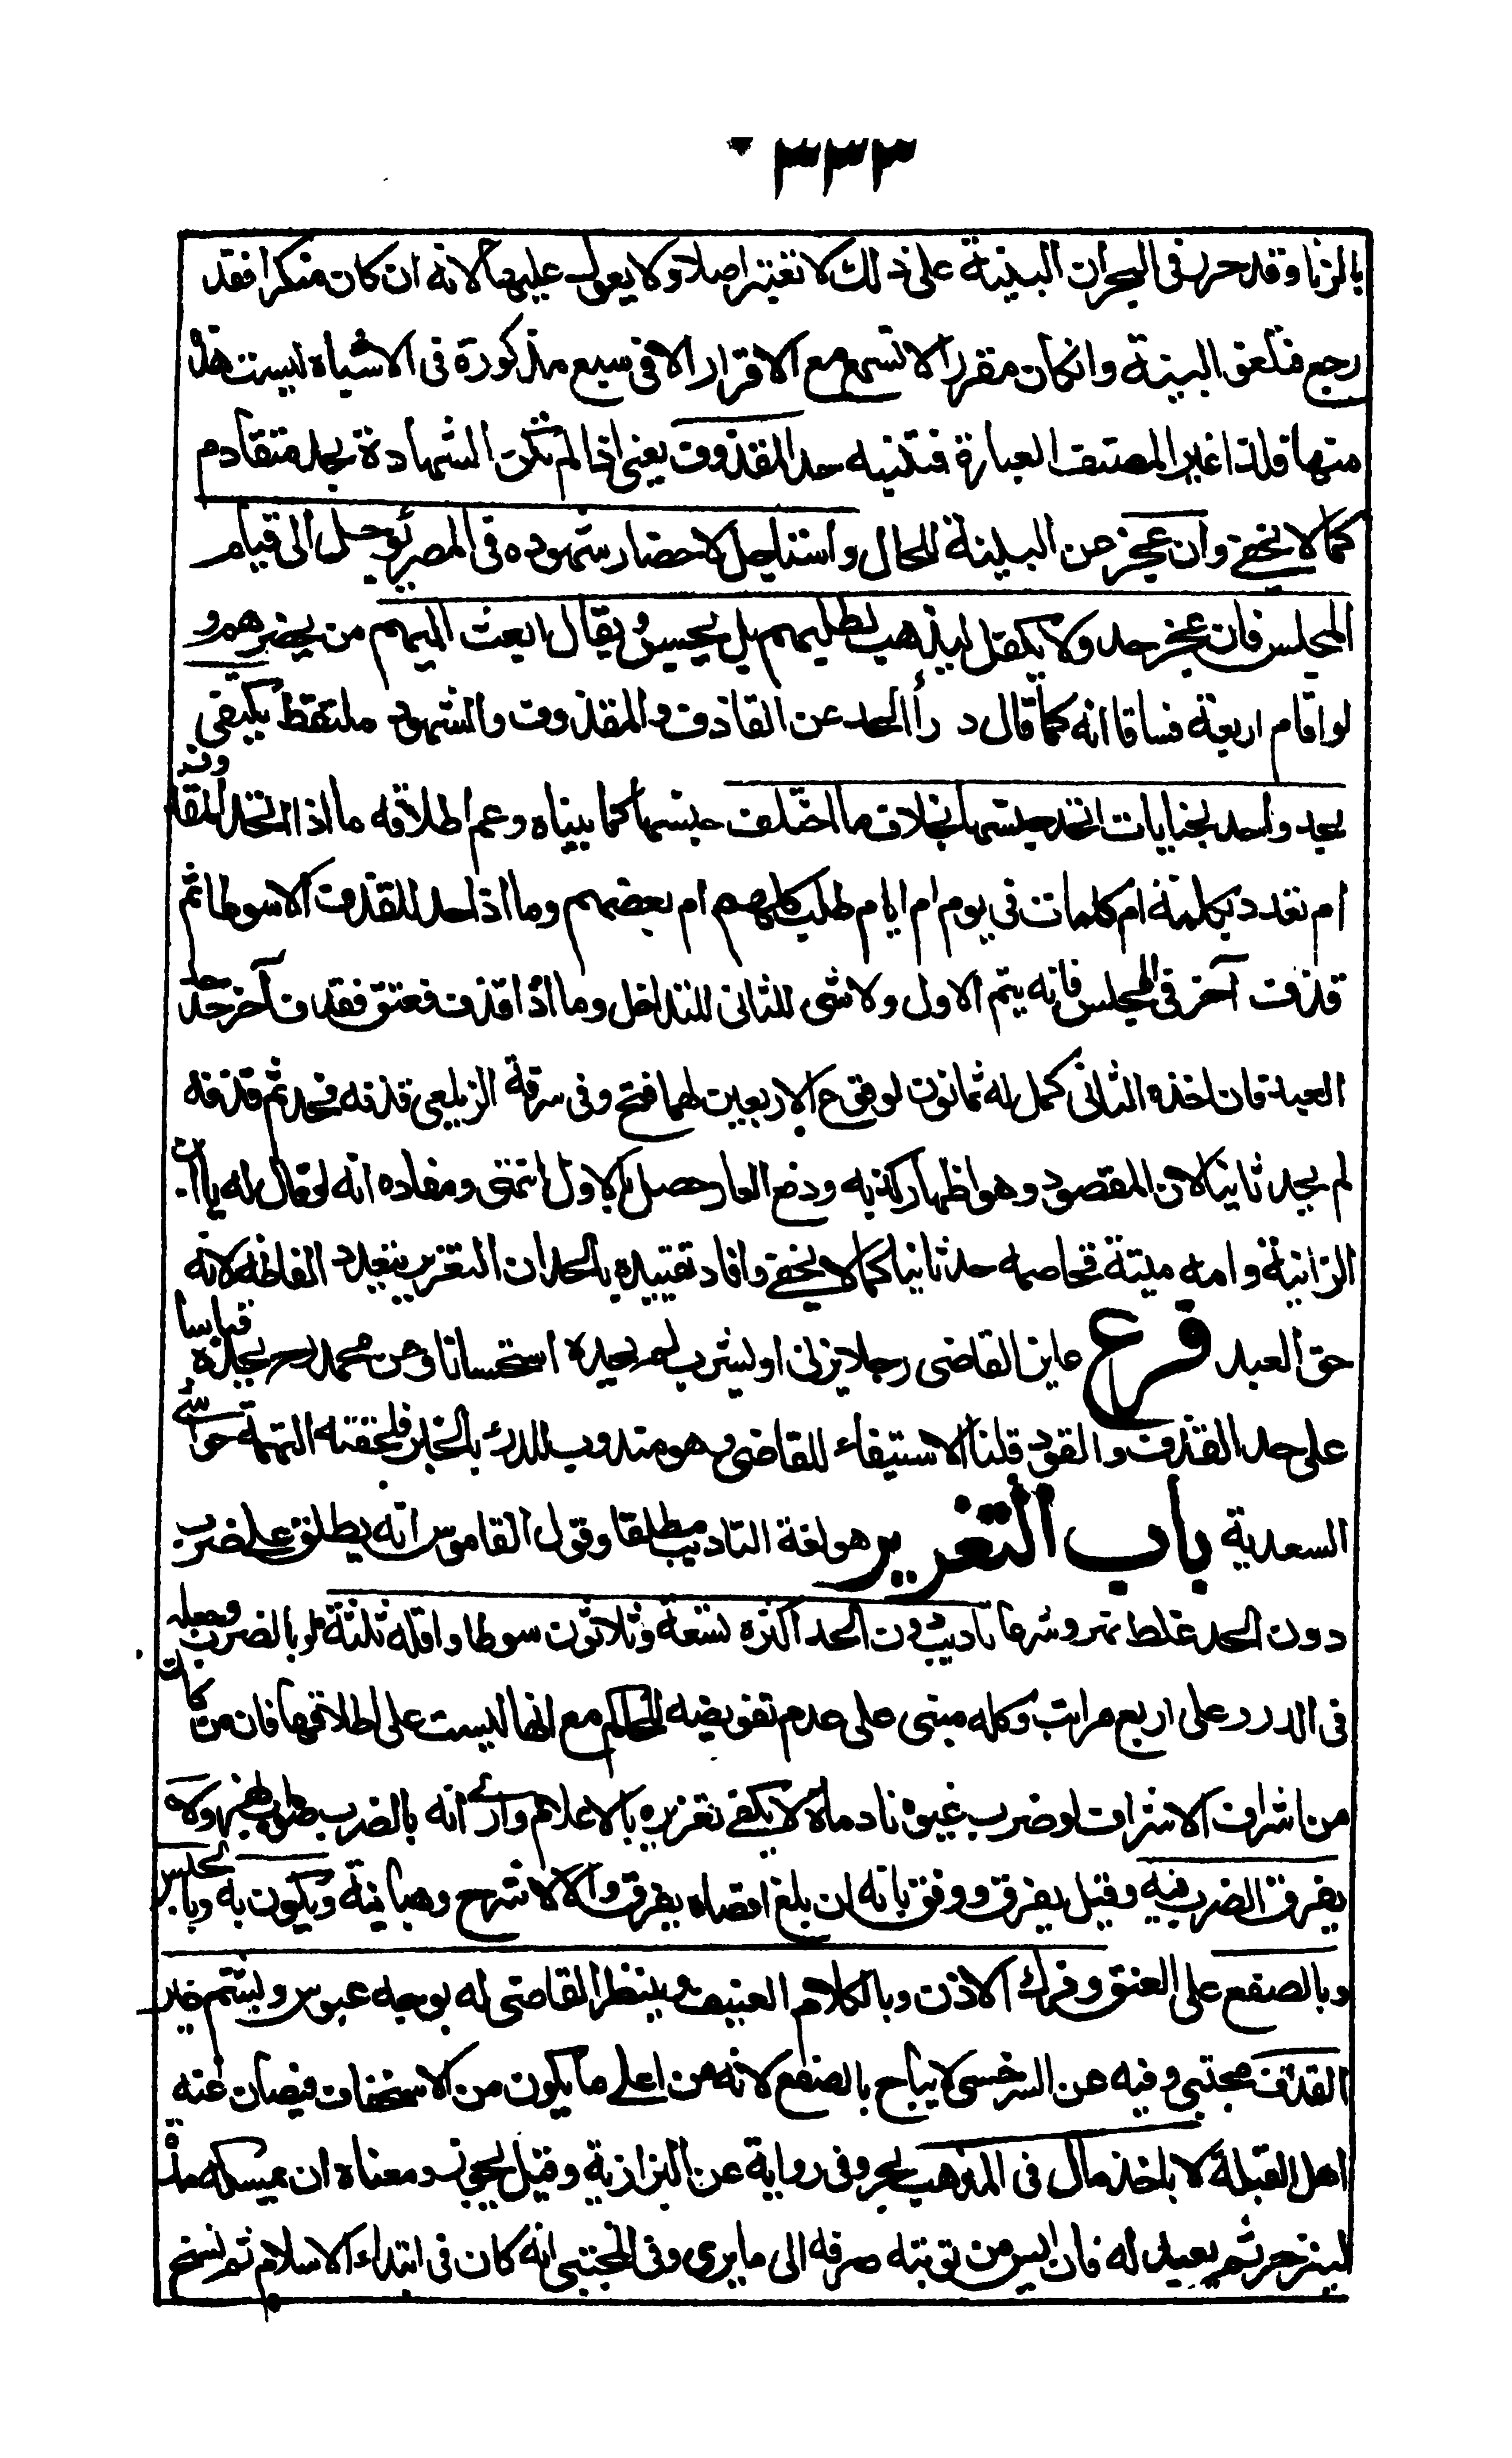 ٣٣٣
بالزنا وقد حرر فى البحر ان البينة على ذلك لا تعتبر اصلا ولا يعول عليها لانه ان كان منكرا فقد
رجع فتلغو البينة وان كان مقرا لا تسمع مع الاقرار الا فى سبع مذكورة فى الاشباه ليست هذه
منها فلذا غير المصنف العبارة فتنبه حد المقذوف يعنى اذا لم تكن الشهادة بحد متقادم
كما لا يخفى وان عجز عن البينة للحال واستاجل لاحضار شهوده فى المصر يؤجل الى قيام
المجلس فان عجز حد ولا يكفل ليذهب لطلبهم بل يحبس ويقال ابعث اليهم من يحضرهم و
لو اقام اربعة فساقا انه كما قال درأ الحد عن القاذف والمقذوف والشهود ملتقط يكتفى
بحد واحد لجنايات اتحد جنسها بخلاف ما اختلف جنسها كما بيناه وعم اطلاقه ما اذا اتحد المقذوف
ام تعدد بكلمة ام كلمات فى يوم ام ايام طلب كلهم ام بعضهم وما اذا حد للقذف الا سوطا ثم
قذف آخر فى المجلس فانه يتم الاول ولا شى للثانى للتداخل وما اذا قذف فعتق فقذف آخر حد حد
العبد فان اخذه الثانى كمل له ثمانون لوقوع الاربعين لهما فتح وفى سرقة الزيلعى قذفه فحد ثم قذفه
لم يحد ثانيا لان المقصود وهو اظهار كذبه ودفع العار حصل بالاول انتهى ومفاده انه لو قال له يا ابن
الزانية وامه ميتة فخاصمه حد ثانيا كما لا يخفى وافاد تقييده بالحد ان التعزير يتعدد الفاظه لانه
حق العبد فرع عاين القاضى رجلا يزنى او يشرب لم يحده استحسانا وعن محمد رح يحده قياسا
على حد القذف والقود قلنا الاستيفاء للقاضى وهو مندوب للدرء بالخبر فلحقته التهمة حواشى
السعدية باب التعزير هو لغة التاديب مطلقا وقول القاموس انه يطلق على ضرب
دون الحد غلط نهر وشرعا تاديب دون الحد اكثره تسعة وثلاثون سوطا واقله ثلثة لو بالضرب وجعله
فى الدرر على اربع مراتب وكله مبنى على عدم تفويضه للحاكم مع انها ليست على اطلاقها فان من كان
من اشراف الاشراف لو ضرب غيره فادماه لا يكفى تعزيره بالاعلام وارى انه بالضرب صواب نهر ولا
يفرق الضرب فيه وقيل يفرق ووفق بانه ان بلغ اقصاه يفرق والا لا شرح وهبانية ويكون به وبالحبس
وبالصفع على العنق وفرك الاذن وبالكلام العنيف وبنظر القاضى له بوجه عبوس وبشتم غير
القذف مجتبى وفيه عن السرخسى لا يباح بالصفع لانه من اعلى ما يكون من الاستخفاف فيصان عنه
اهل القبلة لا باخذ مال فى المذهب بحر وفى رواية عن البزازية وقيل يجوز ومعناه ان يمسكه مدة
لينزجر ثم يعيد له فان ايس من توبته صرفه الى ما يرى وفى المجتبى انه كان فى ابتداء الاسلام ثم نسخ